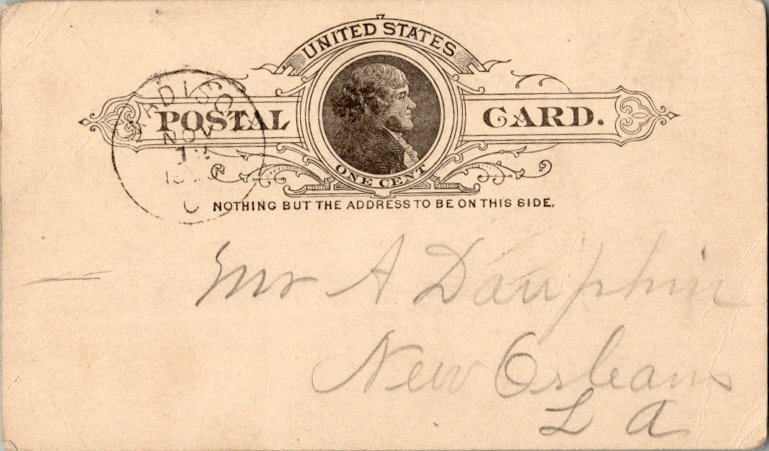 UNITED STATES
POSTAL CARD.
ONE CENT
NOTHING BUT THE ADDRESS TO BE ON THIS SIDE.
MADISON
NOV
Mr A Dauphin
New Orleans
L A